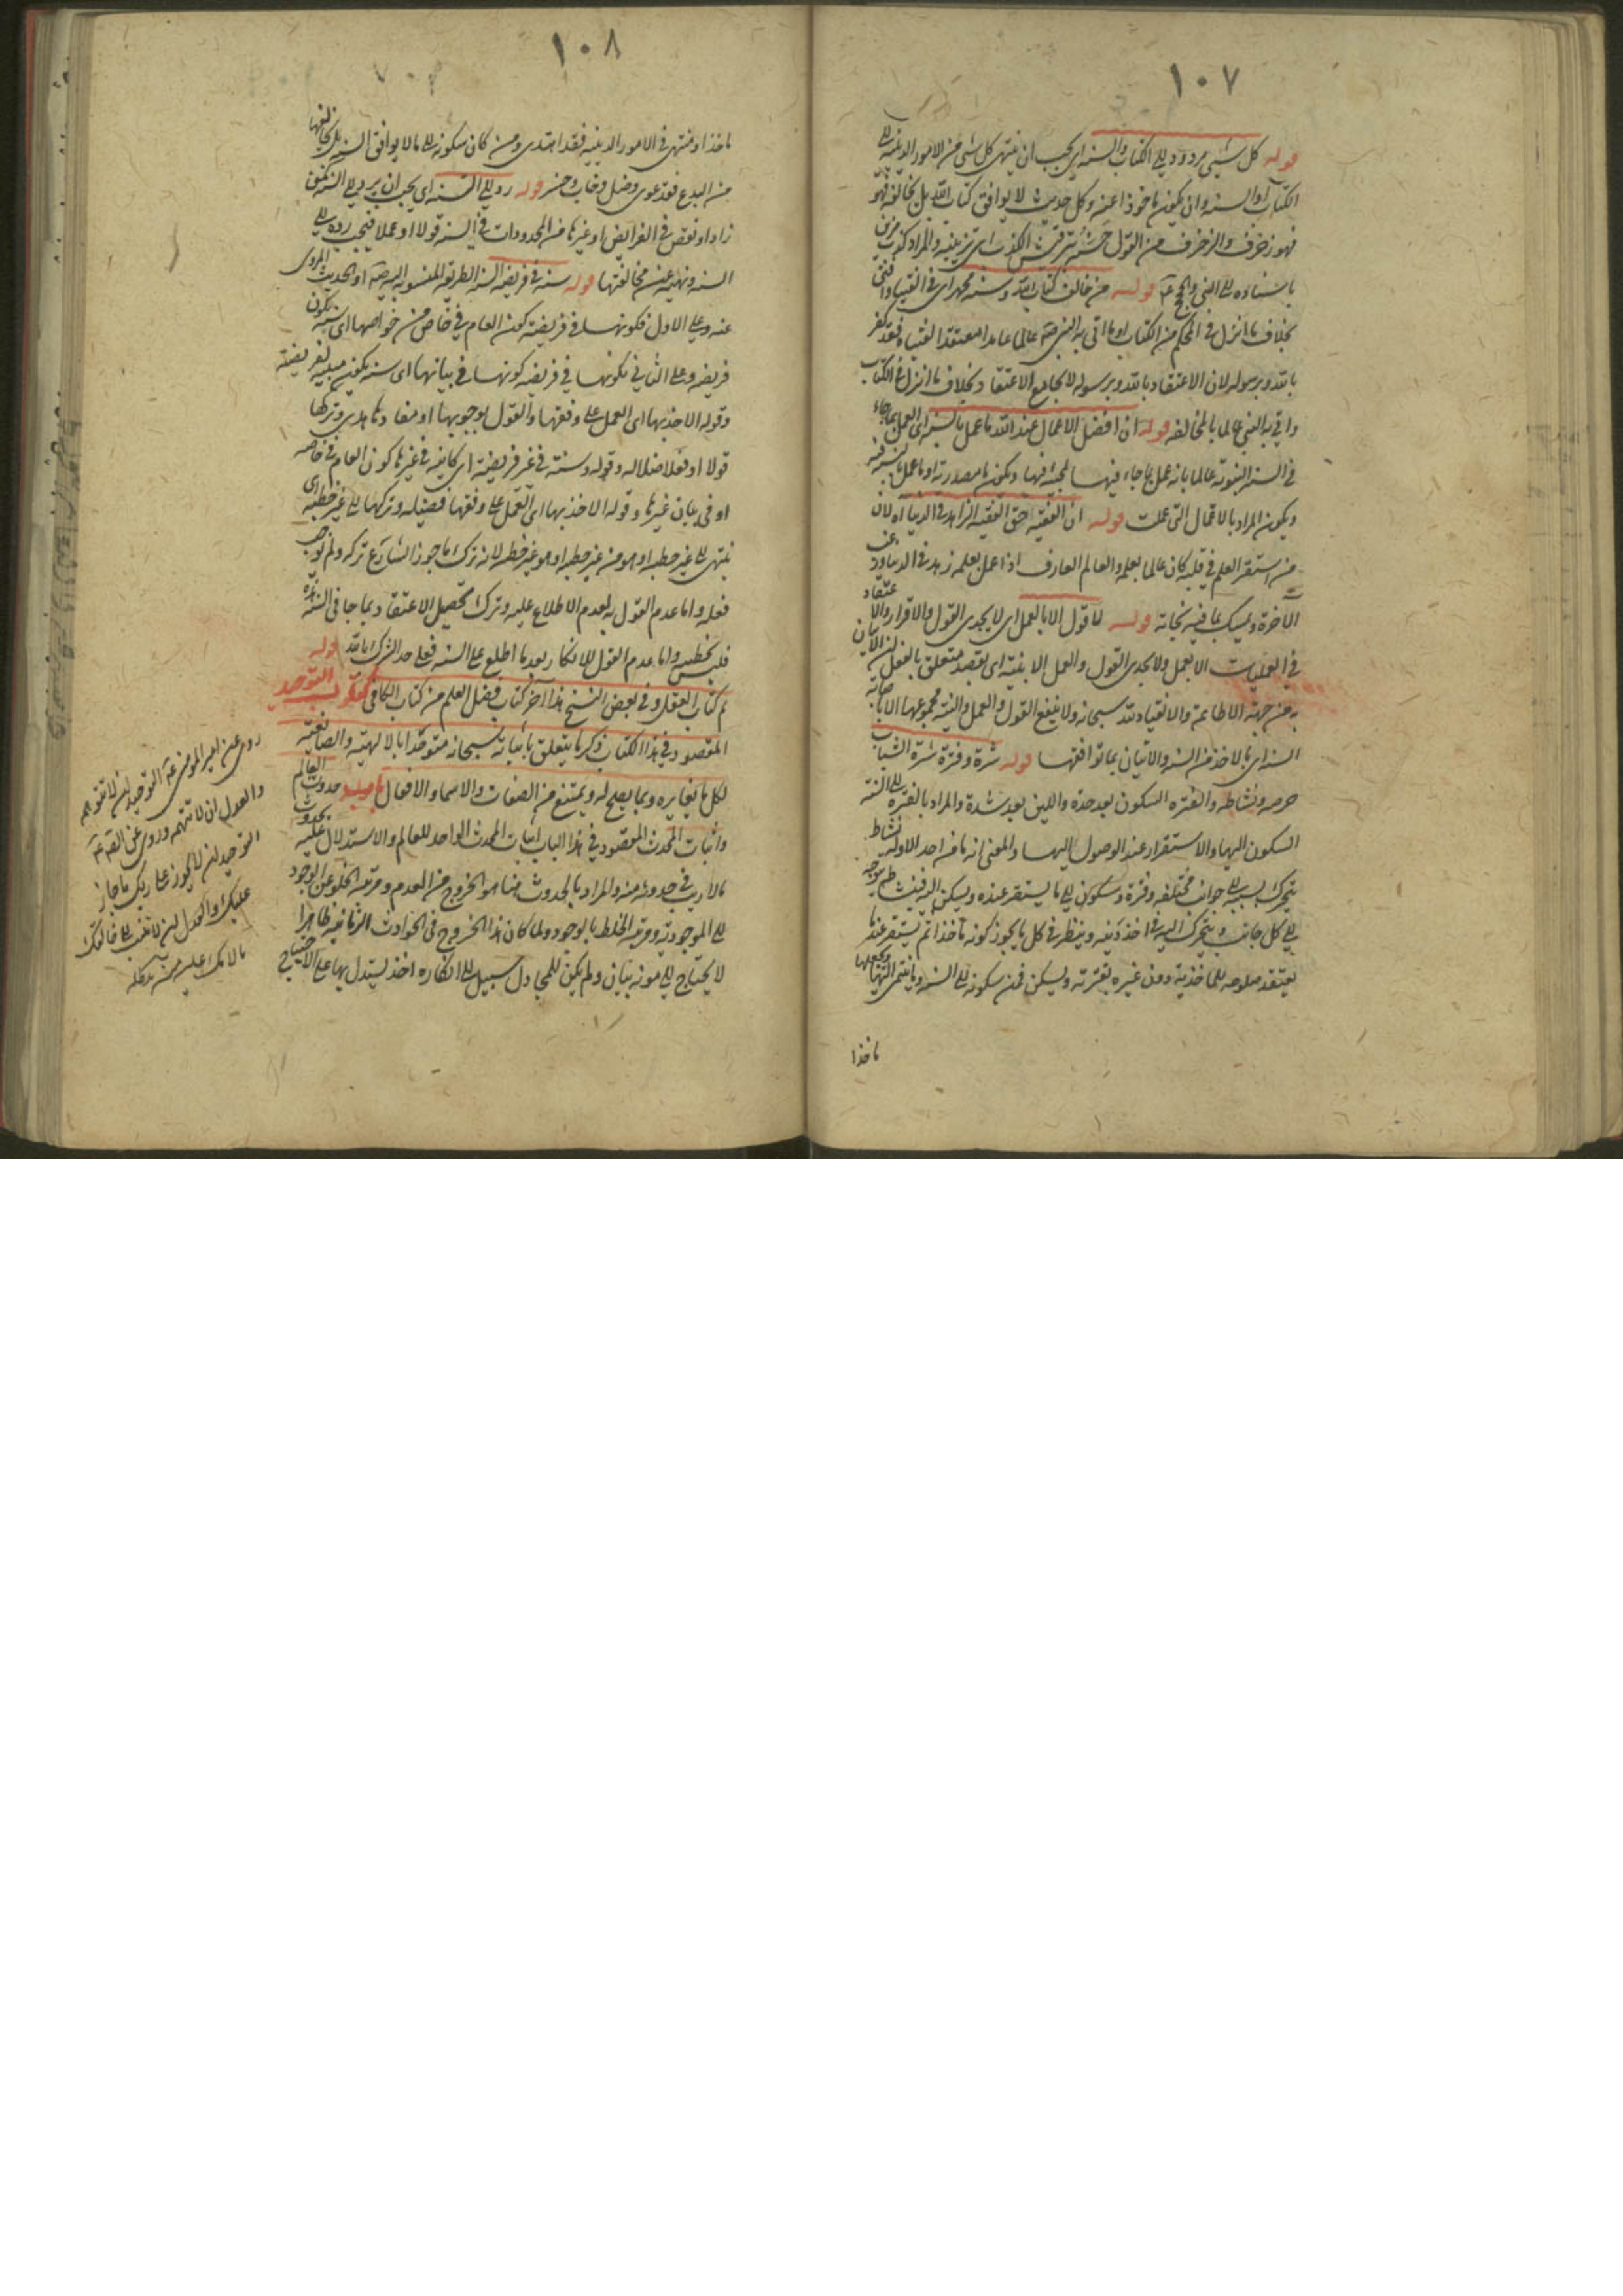 ١٠٧
قوله كل شيء مردود الى الكتاب والسنة اى يجب ان ينتهى كل شئ من الامور الدينية الى
الكتاب او السنة وان يكون ماخوذا عنه وكل حديث لا يوافق كتاب الله بل يخالفه فهو
فهو زخرف والزخرف من القول حسنه بترقيش الكذب اى تزيينه والمراد كذب مزين
باسناده الى النبى والحجج قوله من خالف كتاب الله وسنة محمد اى فى الفتيا وافتى
بخلاف ما انزل فى المحكم من الكتاب او ما اتى به النبى عالما عامدا معتقدا لفتياه فقد كفر
بالله وبرسوله لان الاعتقاد بالله وبرسوله لا يجامع الاعتقاد بخلاف ما انزل فى الكتاب
واتى به النبى عالما بالمخالفة قوله ان افضل الاعمال عند الله ما عمل بالسنة اى العمل بما جاء
فى السنة النبوية عالما بانه عمل بما جاء فيها لمجيئه فيها ويكون ما مصدرية او ما عمل بالسنة فيه
ويكون المراد بالاعمال التى عملت قوله ان الفقيه حق الفقيه الزاهد فى الدنيا اه لان
من استقر العلم فى قلبه كان عالما بعلمه والعالم العارف اذا عمل بعلمه زهد فى الدنيا ورغب
الآخرة وتمسك بما فيه نجاته قوله لا قول الا بالعمل اى لا يجدى القول والاقرار والاعتقاد
فى العمليات الا بالعمل ولا يجدى القول والعمل الا بنية اى بقصد متعلق بالفعل لان الاتيان
به من جهة الاطاعة والانقياد لله سبحانه ولا ينفع القول والعمل والنية مجموعها الا باصابة
السنة اى بالاخذ من السنة والاتيان بما توافقها قوله شرة وفترة شرة الشباب
حرصه ونشاطه والفترة السكون بعد حدة واللين بعد شدة والمراد بالفترة الى السنة
السكون اليها والاستقرار عند الوصول اليها والمعنى انه ما من احد الا وله نشاط
يتحرك بسببه الى جوانب مختلفة وفترة وسكون الى ما يستقر عنده ويسكن اليه فينشاطه يتوجه
الى كل جانب ويتحرك اليه فى اخذ دينه وينظر فى كل ما يجوز كونه مأخذا ثم يستقر عند ما
يعتقد صلوحه للماخذية دون غيره بفترته ويسكن فمن سكونه الى السنة وما ينتمى اليها ويجعلها
ماخذا
١٠٨
ماخذا ومنتهى فى الامور الدينية فقد اهتدى ومن كان سكونه الى ما لا يوافق السنة بل يخالفها
من البدع فقد غوى وضل وخاب وخسر قوله رد الى السنة اى يجب ان يرد الى السنة لمن
زاد او نقص فى الفرائض او غيرها من المحدودات فى السنة قولا او عملا فيجب رده الى
السنة ونهيه عن مخالفتها قوله سنة فى فريضة السنة الطريقة المنسوبة اليه او الحديث المروى
عنه وعلى الاول فكونها فى فريضة كون العام فى خاص من خواصها اى سنة يكون
فريضة وعلى الثانى يكونها فى فريضة كونها فى بيانها اى سنة يكون مبينة لفريضة
وقوله الاخذ بها اى العمل على وفقها والقول بوجوبها او مفادها هدى وتركها
قولا او فعلا ضلالة وقوله وسنة فى غير فريضة اى كاينة فى غيرها كون العام فى خاصه
او فى بيان غيرها وقوله الاخذ بها اى العمل على وفقها فضيلة وتركها الى غير خطيئة اى
ينتهى الى غير خطيئة او هو من غير خطيئة او هو غير خطيئة لانه ترك ما جوز الشارع تركه ولم يوجب
فعله واما عدم القول به لعدم الاطلاع عليه وترك تحصيل الاعتقاد بما جا فى السنة
فليس بخطيئة واما عدم القول للانكار بعد ما اطلع على السنة فعلى حد الشرك بالله قوله
تم كتاب العقل وفى بعض النسخ هذا آخر كتاب فضل العلم من كتاب الكافى كتاب التوحيد
المقصود فى هذا الكتاب ذكر ما يتعلق باثباته سبحانه متوحدا بالالهية والصانعية
لكل ما يغايره وبما يصح له ويمتنع من الصفات والاسماء والافعال باب حدوث العالم
واثبات المحدث المقصود فى هذا الباب اثبات المحدث الواحد للعالم والاستدلال عليه بحدوث
ما لا ريب فى حدوثه منه والمراد بالحدوث هنا هو الخروج من العدم ومرتبة الخلو عن الوجود
الى الموجودية ومرتبة الخلط بالوجود ولما كان هذا الخروج فى الحوادث الزمانية ظاهرا
لا يحتاج الى مونة بيان ولم يكن للمجادل سبيل الى انكاره اخذ يستدل بها على الاحتياج
روى عن امير المؤمنين التوحيد ان لا تتوهمه
والعدل ان لا تتهمه وروى عن
التوحيد ان لا يجوز على ربك ما جاز
عليك والعدل ان لا تنسب الى خالقك
ما لامك عليه